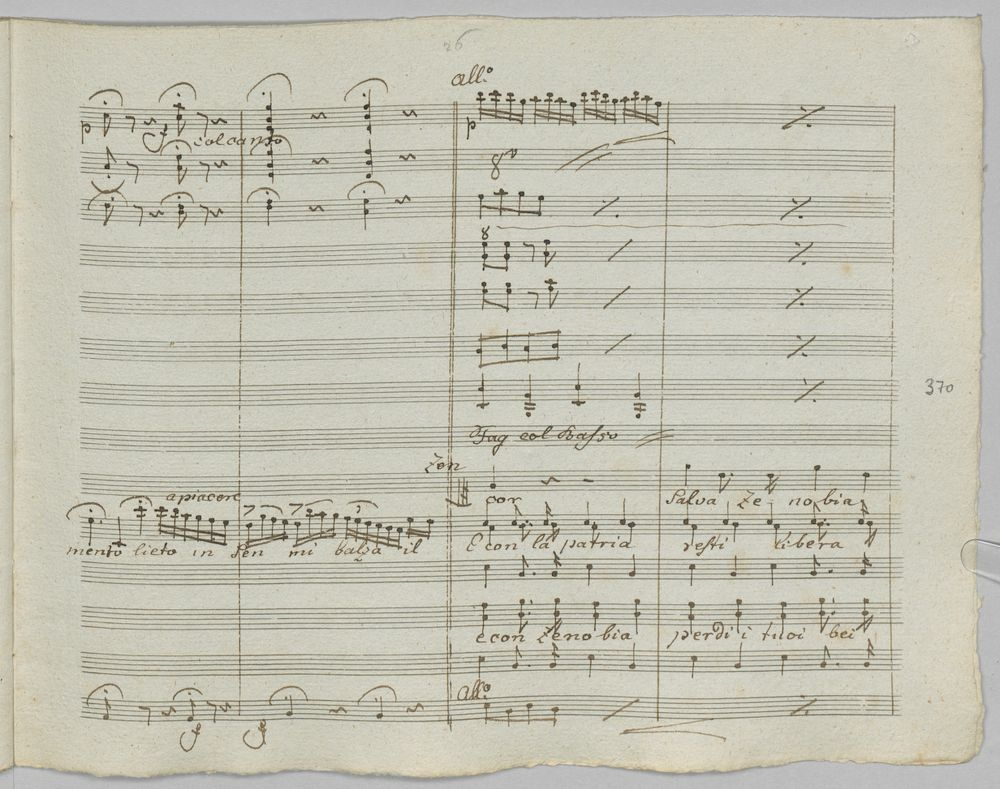 26
all.o
p
col canto
8va
8
370
Fag col Basso
Zen
a piacere
cor
Salva Ze - nobia
mento lieto in sen mi balza il
E con la patria resti libera
e con Zenobia perdi i tuoi bei
all.o